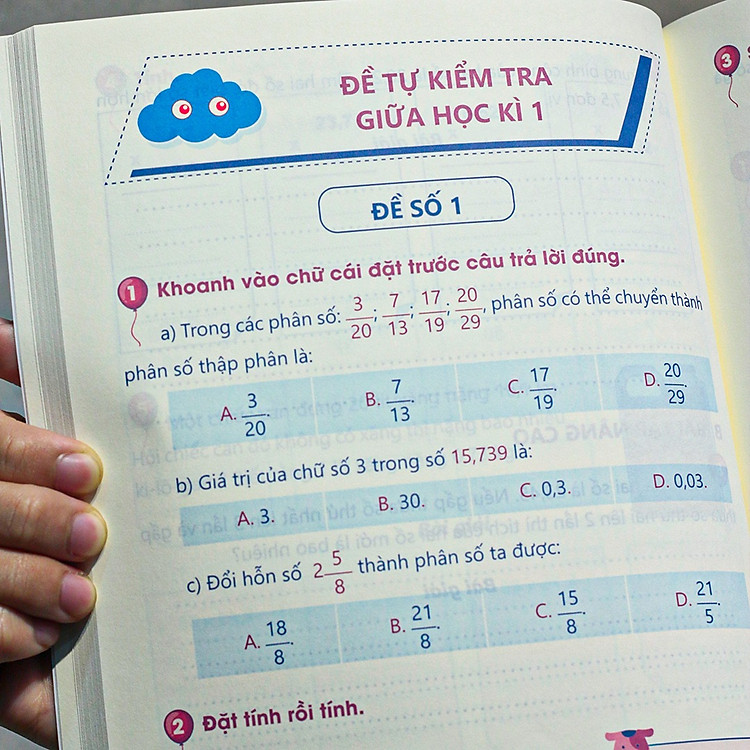 ĐỀ TỰ KIỂM TRA
GIỮA HỌC KÌ 1
ĐỀ SỐ 1
1 Khoanh vào chữ cái đặt trước câu trả lời đúng.
a) Trong các phân số: 3/20; 7/13; 17/19; 20/29, phân số có thể chuyển thành
phân số thập phân là:
A. 3/20. B. 7/13. C. 17/19. D. 20/29.
b) Giá trị của chữ số 3 trong số 15,739 là:
A. 3. B. 30. C. 0,3. D. 0,03.
c) Đổi hỗn số 2 5/8 thành phân số ta được:
A. 18/8. B. 21/8. C. 15/8. D. 21/5.
2 Đặt tính rồi tính.
3